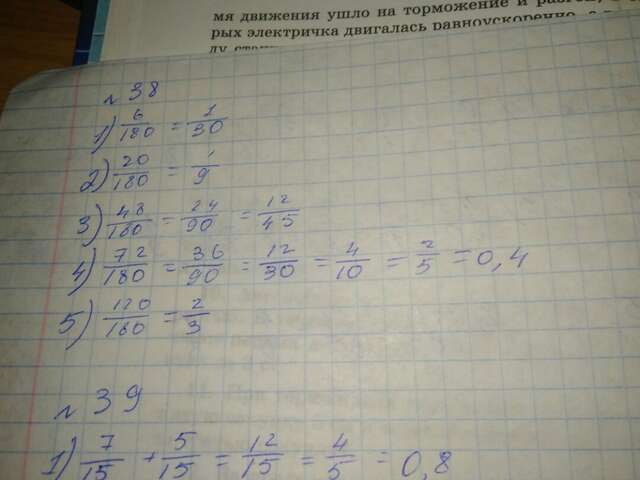 мя движения ушло на торможение и
рых электричка двигалась равноускоренно, а
№ 38
1) 6/180 = 1/30
2) 20/180 = 1/9
3) 48/180 = 24/90 = 12/45
4) 72/180 = 36/90 = 12/30 = 4/10 = 2/5 = 0,4
5) 120/180 = 2/3
№ 39
1) 7/15 + 5/15 = 12/15 = 4/5 = 0,8